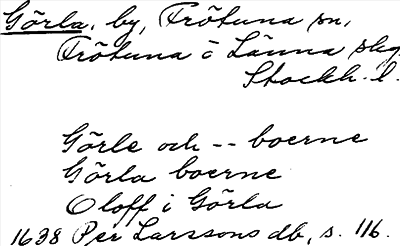 Görla, by, Frötuna sn,
Frötuna o Länna skg
Stockh. l.
Görle och -- boerne
Görla boerne
Oloff i Görla
1638 Per Larssons db, s. 116.